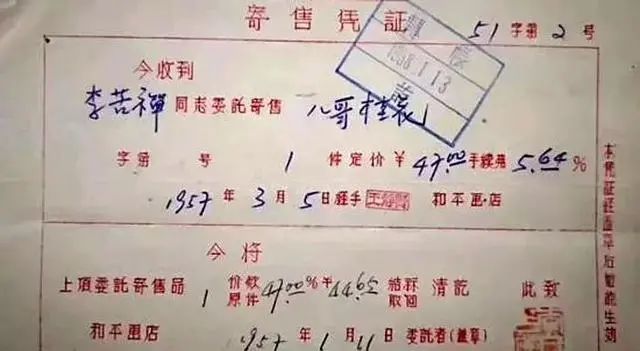 寄售凭証
51字第2号
今收到
李苦禪同志委託寄售 八哥
字第 号 1件定价¥47.00手續費5.64%
1957年3月5日經手 和平画店
今将
上項委託寄售品1 价款 原件 47.00 結算 取回 清訖 此致
和平画店 1957年1月11 委託者(蓋章)
本凭証經蓋章后始能生効